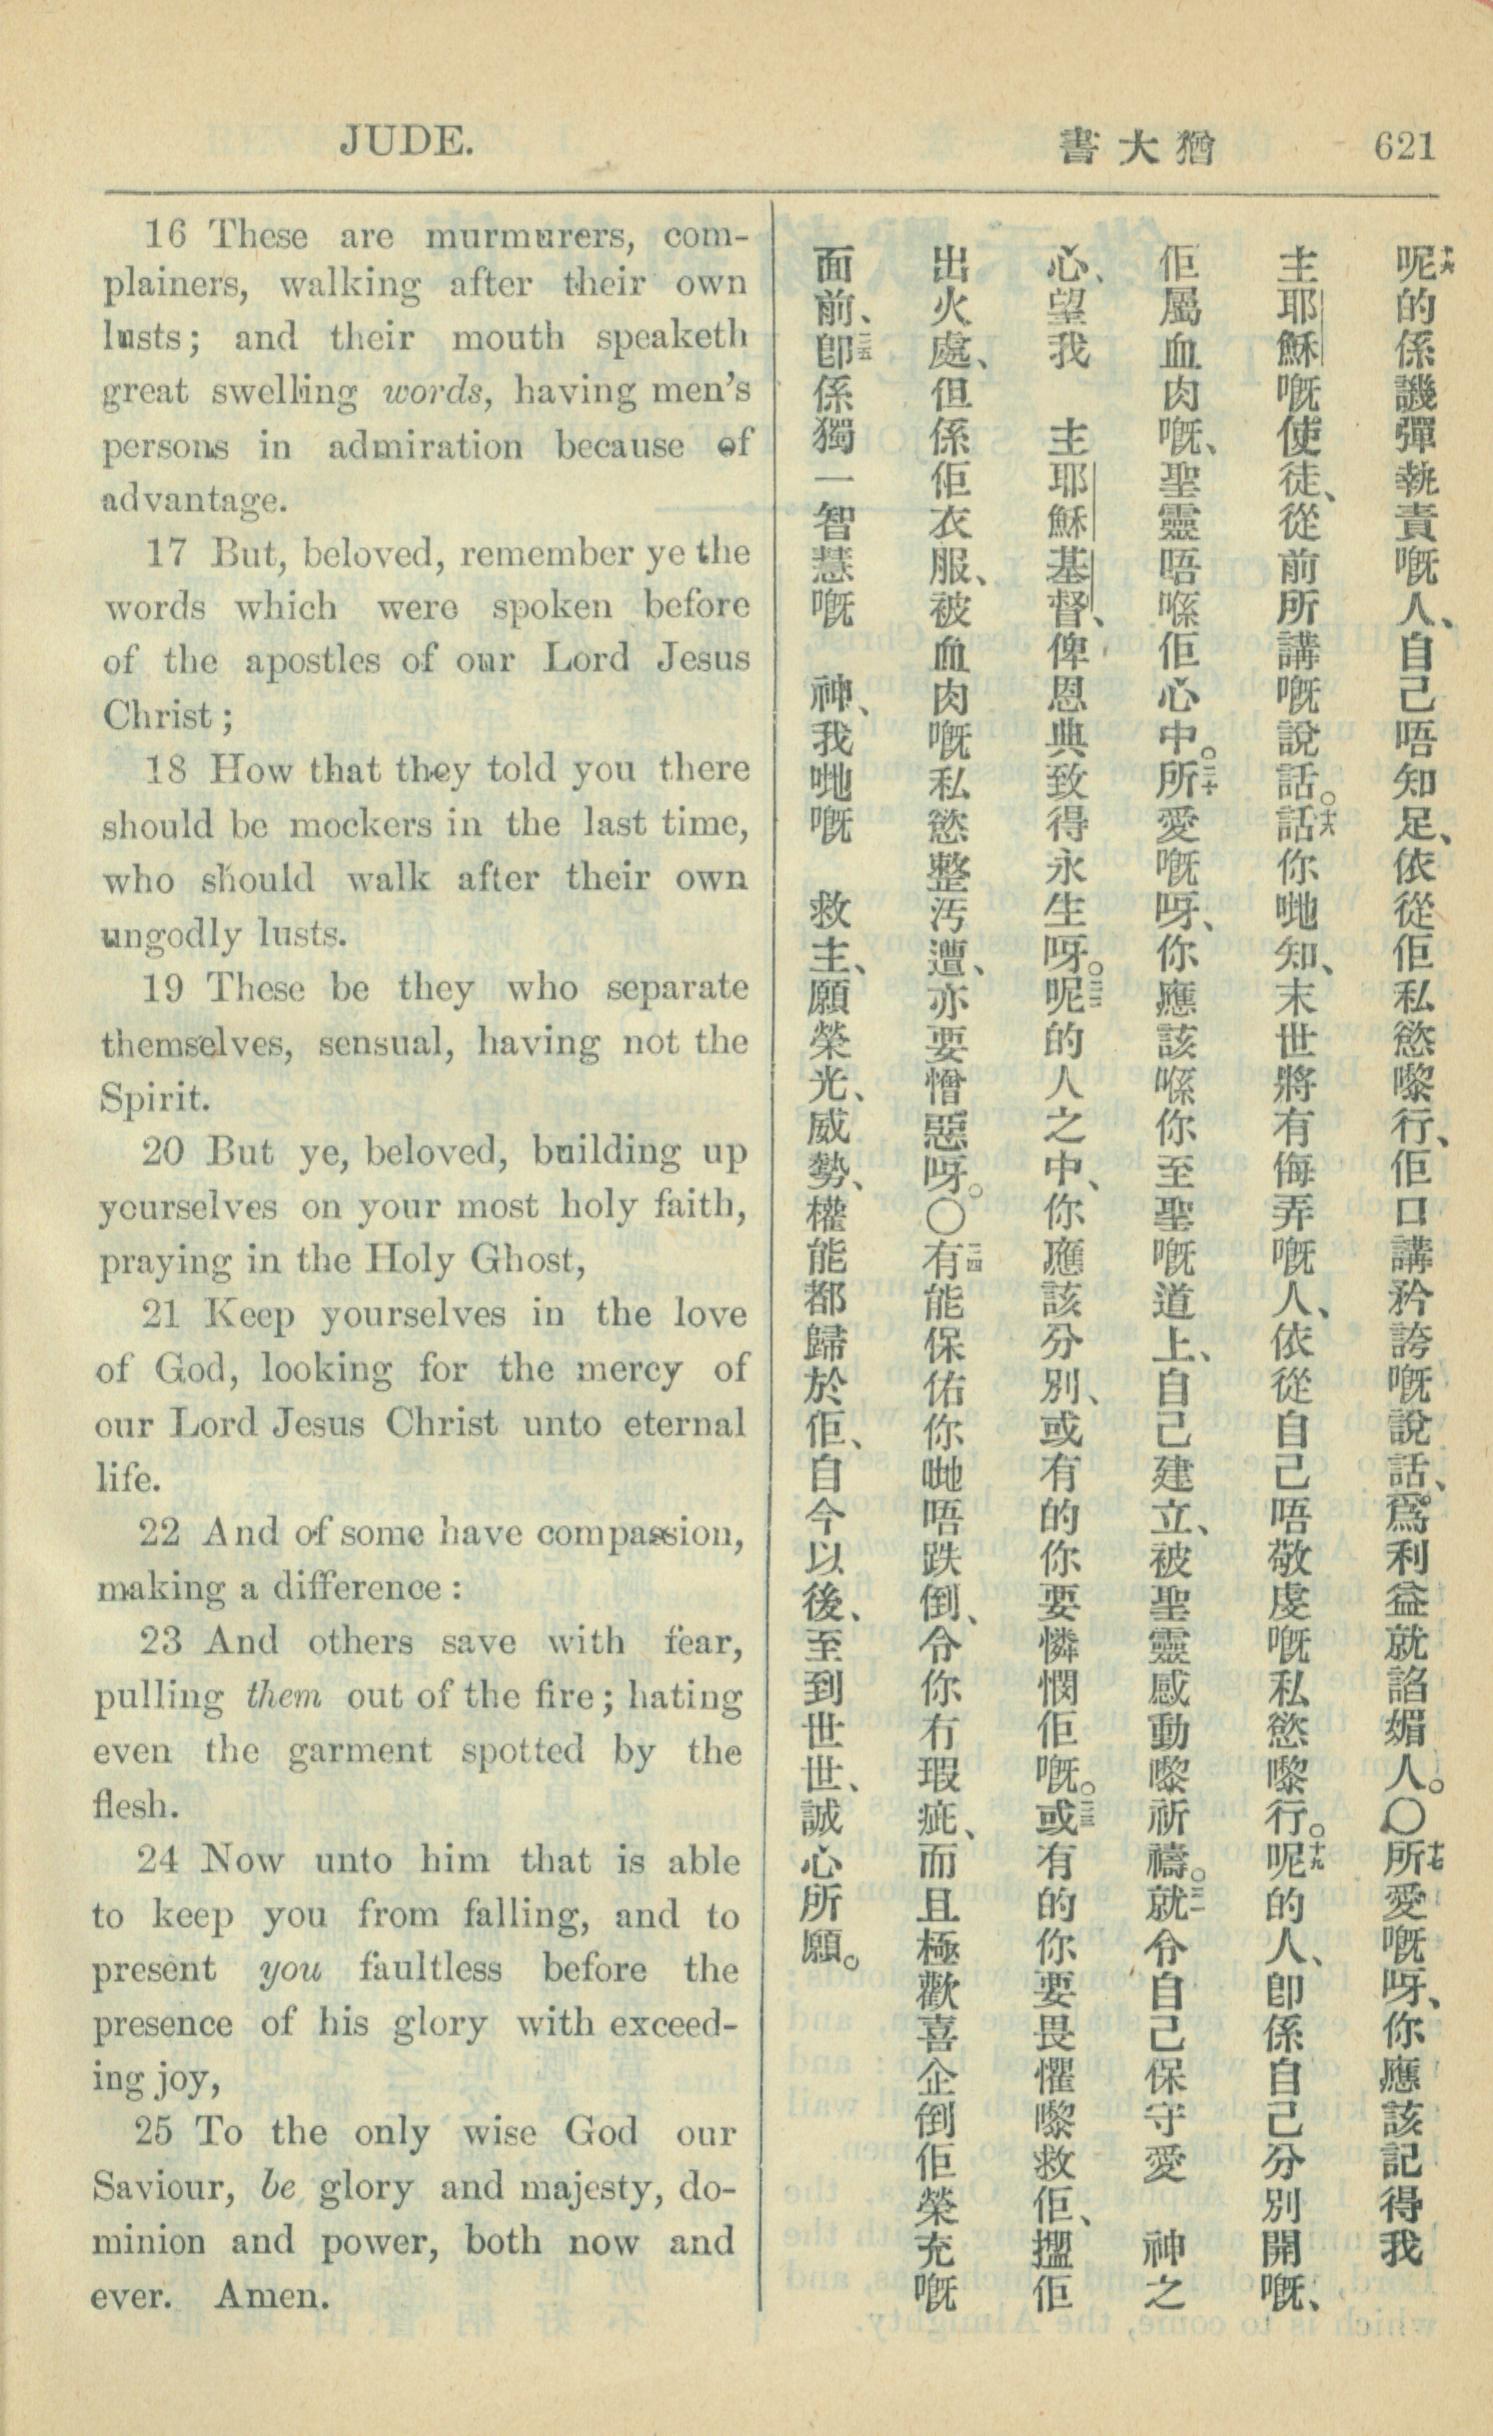 JUDE.
書大猶
621
16 These are murmurers, com-
plainers, walking after their own
lusts; and their mouth speaketh
great swelling words, having men's
persons in admiration because of
advantage.
17 But, beloved, remember ye the
words which were spoken before
of the apostles of our Lord Jesus
Christ;
18 How that they told you there
should be mockers in the last time,
who should walk after their own
ungodly lusts.
19 These be they who separate
themselves, sensual, having not the
Spirit.
20 But ye, beloved, building up
yourselves on your most holy faith,
praying in the Holy Ghost,
21 Keep yourselves in the love
of God, looking for the mercy of
our Lord Jesus Christ unto eternal
life.
22 And of some have compassion,
making a difference:
23 And others save with fear,
pulling them out of the fire; hating
even the garment spotted by the
flesh.
24 Now unto him that is able
to keep you from falling, and to
present you faultless before the
presence of his glory with exceed-
ing joy,
25 To the only wise God our
Saviour, be glory and majesty, do-
minion and power, both now and
ever. Amen.
十六呢的係譏彈執責嘅人、自己唔知足、依從佢私慾嚟行、佢口講矜誇嘅說話、爲利益就諂媚人。〇十七所愛嘅呀、你應該記得我
主耶穌嘅使徒、從前所講嘅說話。十八話你哋知、末世將有侮弄嘅人、依從自己唔敬虔嘅私慾嚟行。十九呢的人、卽係自己分別開嘅、
佢屬血肉嘅、聖靈唔喺佢心中。二十所愛嘅呀、你應該喺你至聖嘅道上、自己建立、被聖靈感動嚟祈禱。二一就令自己保守愛 神之
心、望我 主耶穌基督、俾恩典致得永生呀。二二呢的人之中、你應該分別、或有的你要憐憫佢嘅。二三或有的你要畏懼嚟救佢、搵佢
出火處、但係佢衣服、被血肉嘅私慾整汚遭、亦要憎惡呀。〇二四有能保佑你哋唔跌倒、令你冇瑕疵、而且極歡喜企倒佢榮充嘅
面前、二五卽係獨一智慧嘅 神、我哋嘅 救主、願榮光、威勢、權能都歸於佢、自今以後、至到世世、誠心所願。